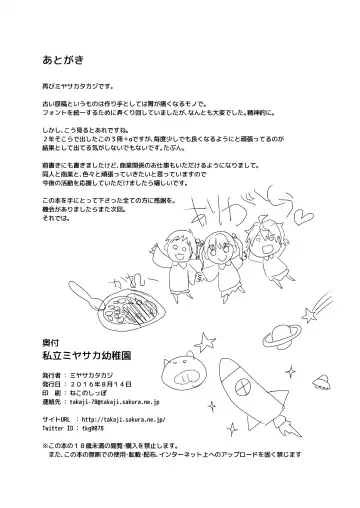 あとがき
再びミヤサカタカジです。
古い原稿というものは作り手としては胃が痛くなるモノで。
フォントを統一するために弄くり回していましたが、なんとも大変でした。精神的に。
しかし、こう見るとあれですね。
2年そこらで出したこの3冊+αですが、毎度少しでも良くなるようにと頑張ってるのが
結果として出てる気がしないでもないです。たぶん。
前書きにも書きましたけど、商業関係のお仕事もいただけるようになりまして。
同人と商業と、色々と頑張っていきたいと思っていますので
今後の活動を応援していただけましたら嬉しいです。
この本を手にとって下さった全ての方に感謝を。
機会がありましたらまた次回。
それでは。
ありがとう
奥付
私立ミヤサカ幼稚園
発行者 : ミヤサカタカジ
発行日 : 2016年8月14日
印 刷 : ねこのしっぽ
連絡先 : takaji-78@takaji.sakura.ne.jp
サイトURL : http://takaji.sakura.ne.jp/
Twitter ID : tkg0078
※この本の18歳未満の閲覧・購入を禁止します。
また、この本の無断での使用・転載・配布、インターネット上へのアップロードを固く禁じます